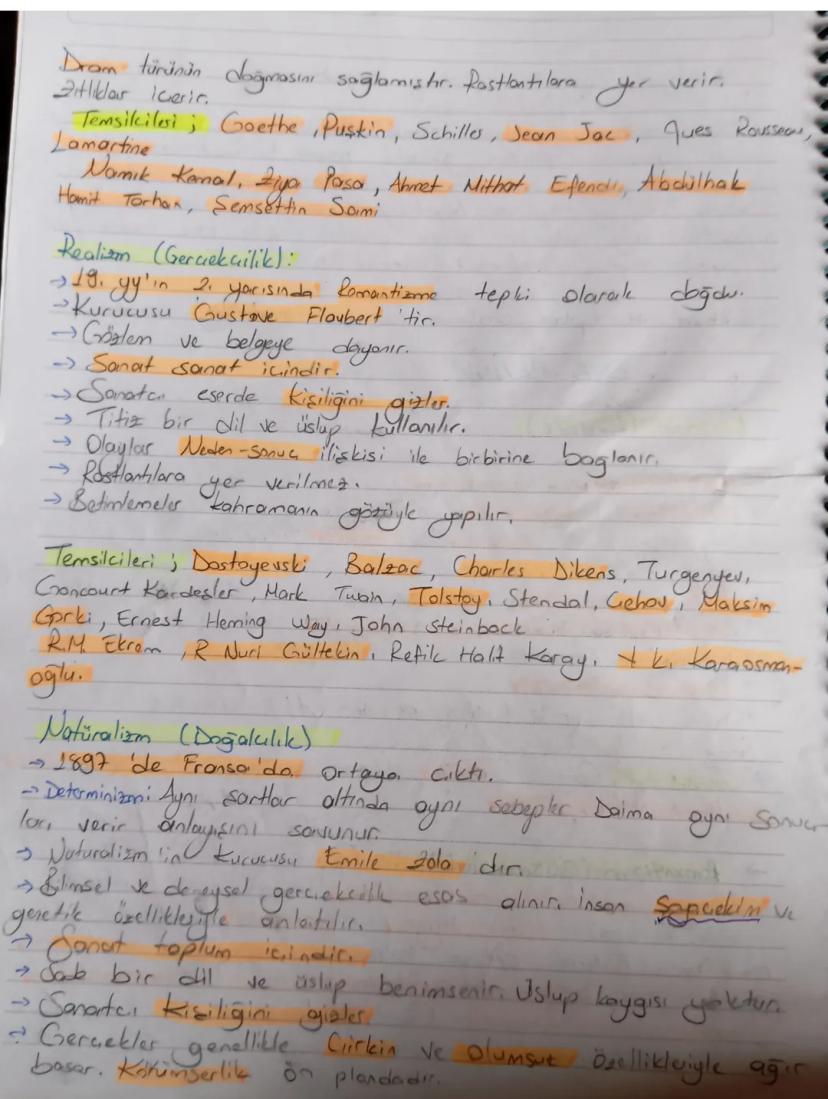 Dram türünün doğmasını sağlamıştır. Rastlantılara yer verir.
Zıtlıklar içerir.
Temsilcileri ; Goethe , Puşkin , Schiller , Jean Jac , ques Rousseau,
Lamartine
Namık Kemal, Ziya Paşa , Ahmet Mithat Efendi, Abdülhak
Hamit Tarhan, Şemsettin Sami
Realizm (Gerçekçilik):
→ 19. yy'ın 2. yarısında Romantizme tepki olarak doğdu.
→ Kurucusu Gustave Flaubert 'tir.
→ Gözlem ve belgeye dayanır.
→ Sanat sanat içindir.
→ Sanatcı eserde kişiliğini gizler.
→ Titiz bir dil ve üslup kullanılır.
→ Olaylar Neden-sonuç ilişkisi ile birbirine bağlanır.
→ Rastlantılara yer verilmez.
→ Betimlemeler kahramanın gözüyle yapılır.
Temsilcileri ; Dostoyevski , Balzac , Charles Dikens, Turgenyev,
Goncourt Kardeşler , Mark Twain , Tolstoy , Stendal, Çehov , Maksim
Gorki , Ernest Heming Way , John Steinback
R.M. Ekrem , R Nuri Gültekin , Refik Halit Karay, Y K. Karaosman-
oğlu.
Natüralizm (Doğalcılık)
→ 1897 'de Fransa'da ortaya çıktı.
→ Determinizmi Aynı şartlar altında aynı sebepler Daima aynı sonuç-
ları verir anlayışını savunur.
→ Naturalizm'in Kurucusu Emile Zola 'dır.
→ Bilimsel ve deneysel gerçekçilik esas alınır. İnsan Soyçekim ve
genetik özellikleriyle anlatılır.
→ Sanat toplum içindir.
→ Sade bir dil ve üslup benimsenir. Üslup kaygısı yoktur.
→ Sanatcı Kişiliğini gizler.
→ Gerçekler genellikle Çirkin ve olumsuz özellikleriyle ağır
basar. Kötümserlik ön plandadır.